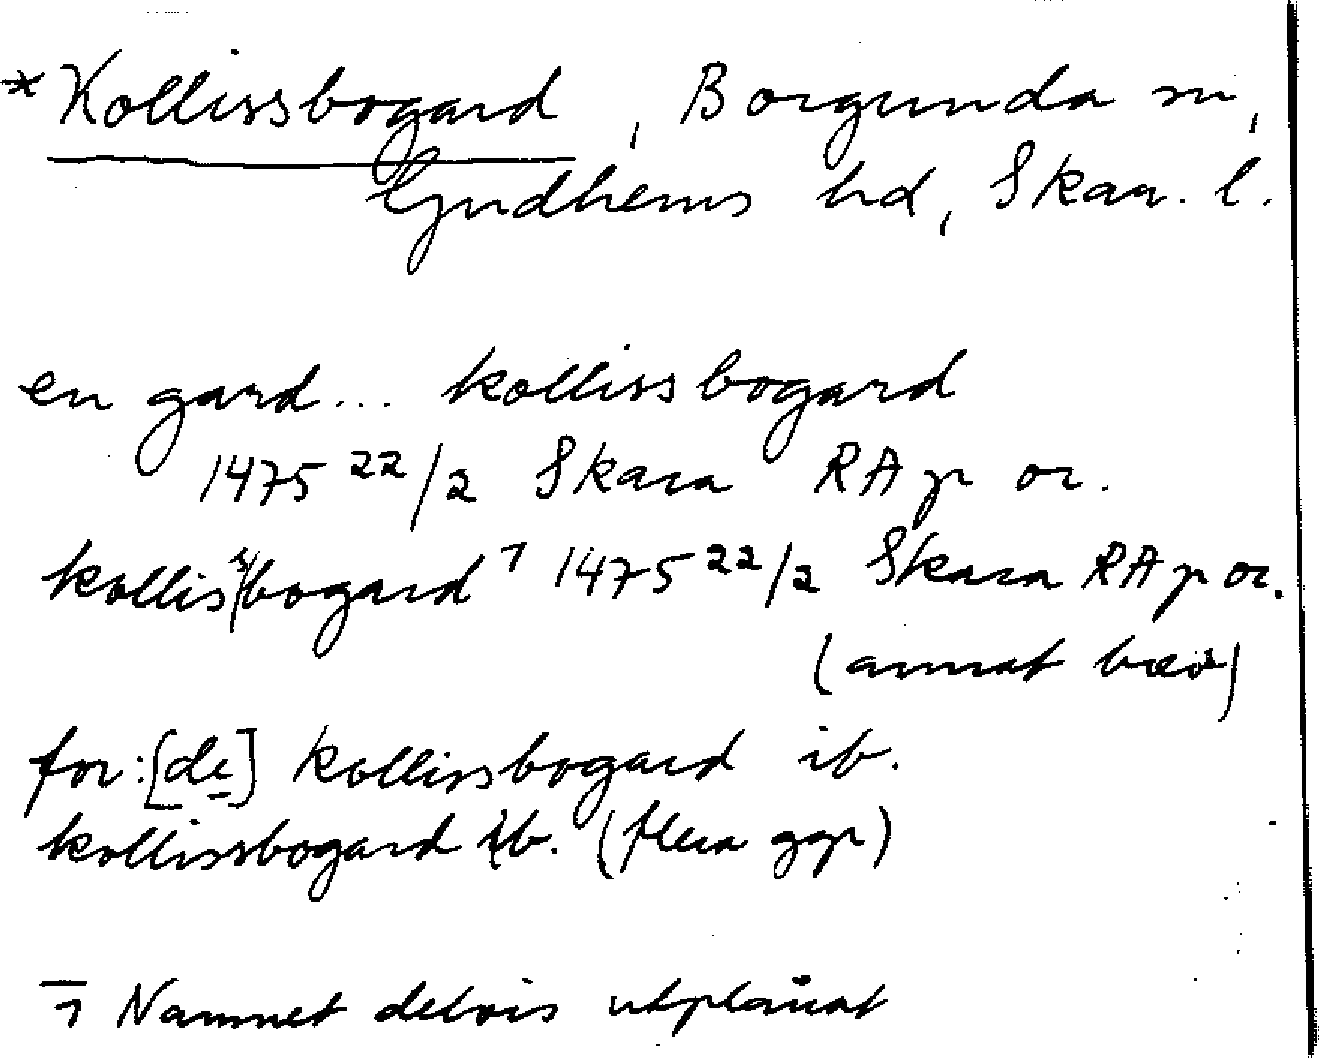 *Kollissbogard, Borgunda sn,
Gudhems hd, Skar. l.
en gard... kollissbogard
1475 22/2 Skara RAp or.
kollissbogard ⁊ 1475 22/2 Skara RAp or.
(annat brev)
for: [de] kollissbogard ib.
kollissbogard ib. (flera ggr)
⁊ Namnet delvis utplånat